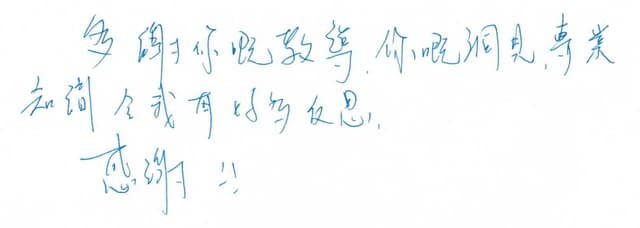 多謝你嘅教導,你嘅洞見,專業
知識令我有好多反思,
感謝!!